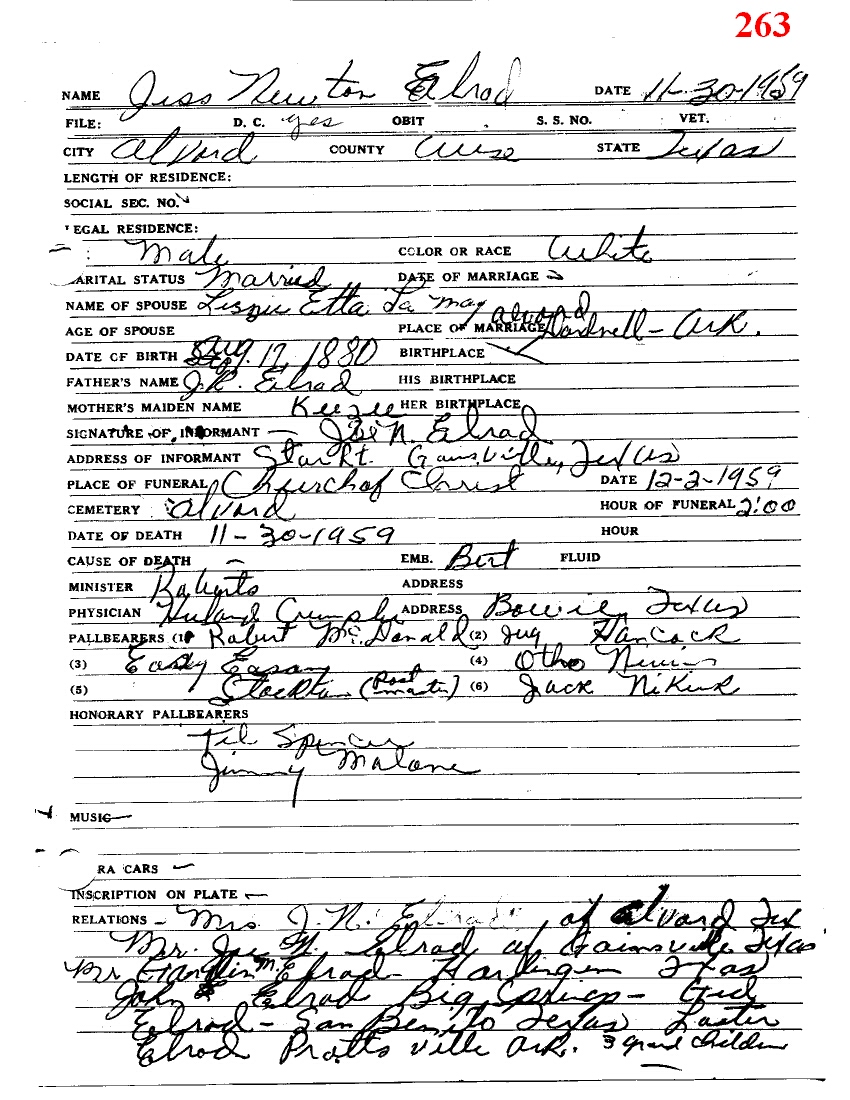 263
NAME Jess Newton Elrod DATE 11-30-1959
FILE: D. C. yes OBIT . S. S. NO. VET.
CITY Alvord COUNTY Wise STATE Texas
LENGTH OF RESIDENCE:
SOCIAL SEC. NO.
EGAL RESIDENCE:
: Male COLOR OR RACE White
ARITAL STATUS Married DATE OF MARRIAGE
NAME OF SPOUSE Etta La May Alvord
AGE OF SPOUSE PLACE OF MARRIAGE Dardnell - Ark.
DATE OF BIRTH Aug. 17, 1880 BIRTHPLACE
FATHER'S NAME J.R. Elrod HIS BIRTHPLACE
MOTHER'S MAIDEN NAME Keezee HER BIRTHPLACE
SIGNATURE OF INFORMANT - Joe N. Elrod
ADDRESS OF INFORMANT Star Rt. Gainsville, Texas
PLACE OF FUNERAL Church of Christ DATE 12-2-1959
CEMETERY Alvord HOUR OF FUNERAL 2:00
DATE OF DEATH 11-30-1959 HOUR
CAUSE OF DEATH - EMB. Bert FLUID
MINISTER Roberts ADDRESS
PHYSICIAN ADDRESS Bowie, Texas
PALLBEARERS (1) Robert McDonald (2) Jug Hancock
(3) Easy Eason (4) Otho
(5) Stockton (Post master) (6) Jack
HONORARY PALLBEARERS
Tel Spencer
Jimmy Malone
MUSIC-
RA CARS -
INSCRIPTION ON PLATE -
RELATIONS - Mrs J. N. Elrod of Alvord Tex
Mr. Joe N. Elrod of Gainsville Texas
Mr M. Elrod - Harlingen Texas
John Elrod Big Springs - Gid
Elrod - San Benito Texas Laster
Elrod Pratts ville Ark. 3 grand children